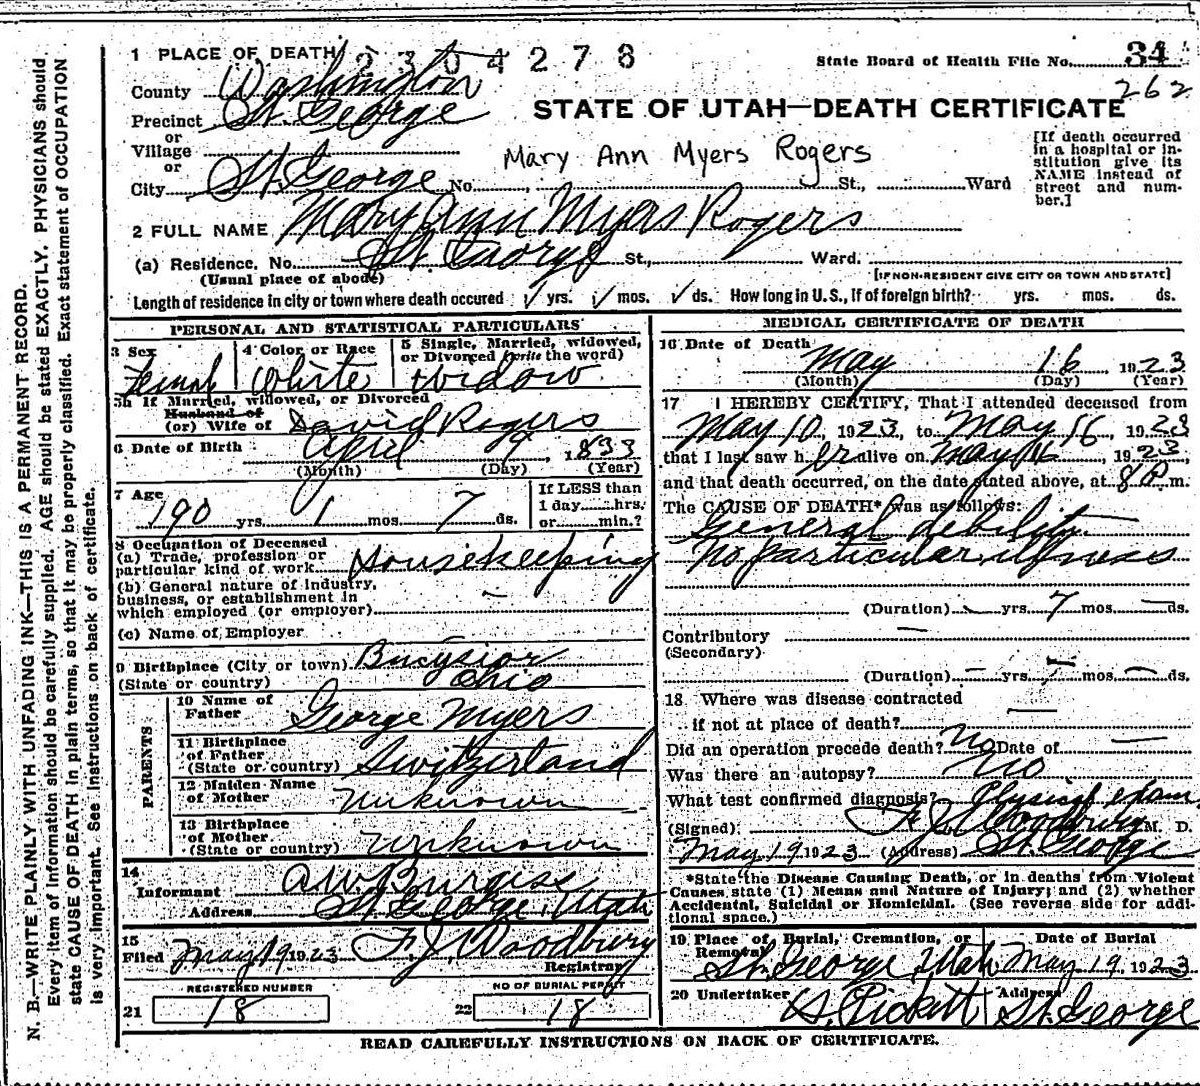 1 PLACE OF DEATH 2304278
State Board of Health File No. 34
262
County Washington
Precinct St. George
STATE OF UTAH—DEATH CERTIFICATE
or
Village
or
Mary Ann Myers Rogers
City St. George No. St., Ward
[If death occurred
in a hospital or in-
stitution give its
NAME instead of
street and num-
ber.]
2 FULL NAME Mary Ann Myers Rogers
(a) Residence. No. St. George St., Ward.
(Usual place of abode)
[IF NON-RESIDENT GIVE CITY OR TOWN AND STATE]
Length of residence in city or town where death occured ✓ yrs. ✓ mos. ✓ ds. How long in U. S., if of foreign birth? yrs. mos. ds.
PERSONAL AND STATISTICAL PARTICULARS
3 Sex
Female
4 Color or Race
White
5 Single, Married, widowed,
or Divorced (write the word)
Widow
5b If Married, widowed, or Divorced
Husband of
(or) Wife of David Rogers
6 Date of Birth April 9, 1833
(Month) (Day) (Year)
7 Age
190 yrs. 1 mos. 7 ds.
If LESS than
1 day hrs.
or min.?
8 Occupation of Deceased
(a) Trade, profession or
particular kind of work Housekeeping
(b) General nature of industry,
business, or establishment in
which employed (or employer) –
(c) Name of Employer
9 Birthplace (City or town)
(State or country) Ohio
PARENTS
10 Name of
Father George Myers
11 Birthplace
of Father
(State or country) Switzerland
12 Maiden Name
of Mother Unknown
13 Birthplace
of Mother
(State or country) Unknown
14
Informant A W Burgess
Address St. George, Utah
15
Filed May 19 1923 F. J. Woodbury
Registrar
REGISTERED NUMBER
21 18
NO OF BURIAL PERMIT
22 18
MEDICAL CERTIFICATE OF DEATH
16 Date of Death
May 16 1923
(Month) (Day) (Year)
17 I HEREBY CERTIFY, That I attended deceased from
May 10, 1923, to May 16, 1923
that I last saw her alive on May 16, 1923,
and that death occurred, on the date stated above, at 8 P. m.
The CAUSE OF DEATH* was as follows:
General debility
No particular illness
(Duration) – yrs. 7 mos. – ds.
Contributory –
(Secondary)
(Duration) – yrs. mos. – ds.
18 Where was disease contracted
if not at place of death? —
Did an operation precede death? No Date of —
Was there an autopsy? No
What test confirmed diagnosis? Physical exam
(Signed) F. J. Woodbury M. D.
May 19 1923 (Address) St. George
*State the Disease Causing Death, or in deaths from Violent
Causes, state (1) Means and Nature of Injury; and (2) whether
Accidental, Suicidal or Homicidal. (See reverse side for addi-
tional space.)
19 Place of Burial, Cremation, or
Removal St. George, Utah
Date of Burial
May 19, 1923
20 Undertaker Pickett
Address St. George
READ CAREFULLY INSTRUCTIONS ON BACK OF CERTIFICATE.
N. B.—WRITE PLAINLY WITH UNFADING INK—THIS IS A PERMANENT RECORD.
Every item of information should be carefully supplied. AGE should be stated EXACTLY. PHYSICIANS should
state CAUSE OF DEATH in plain terms, so that it may be properly classified. Exact statement of OCCUPATION
is very important. See instructions on back of certificate.